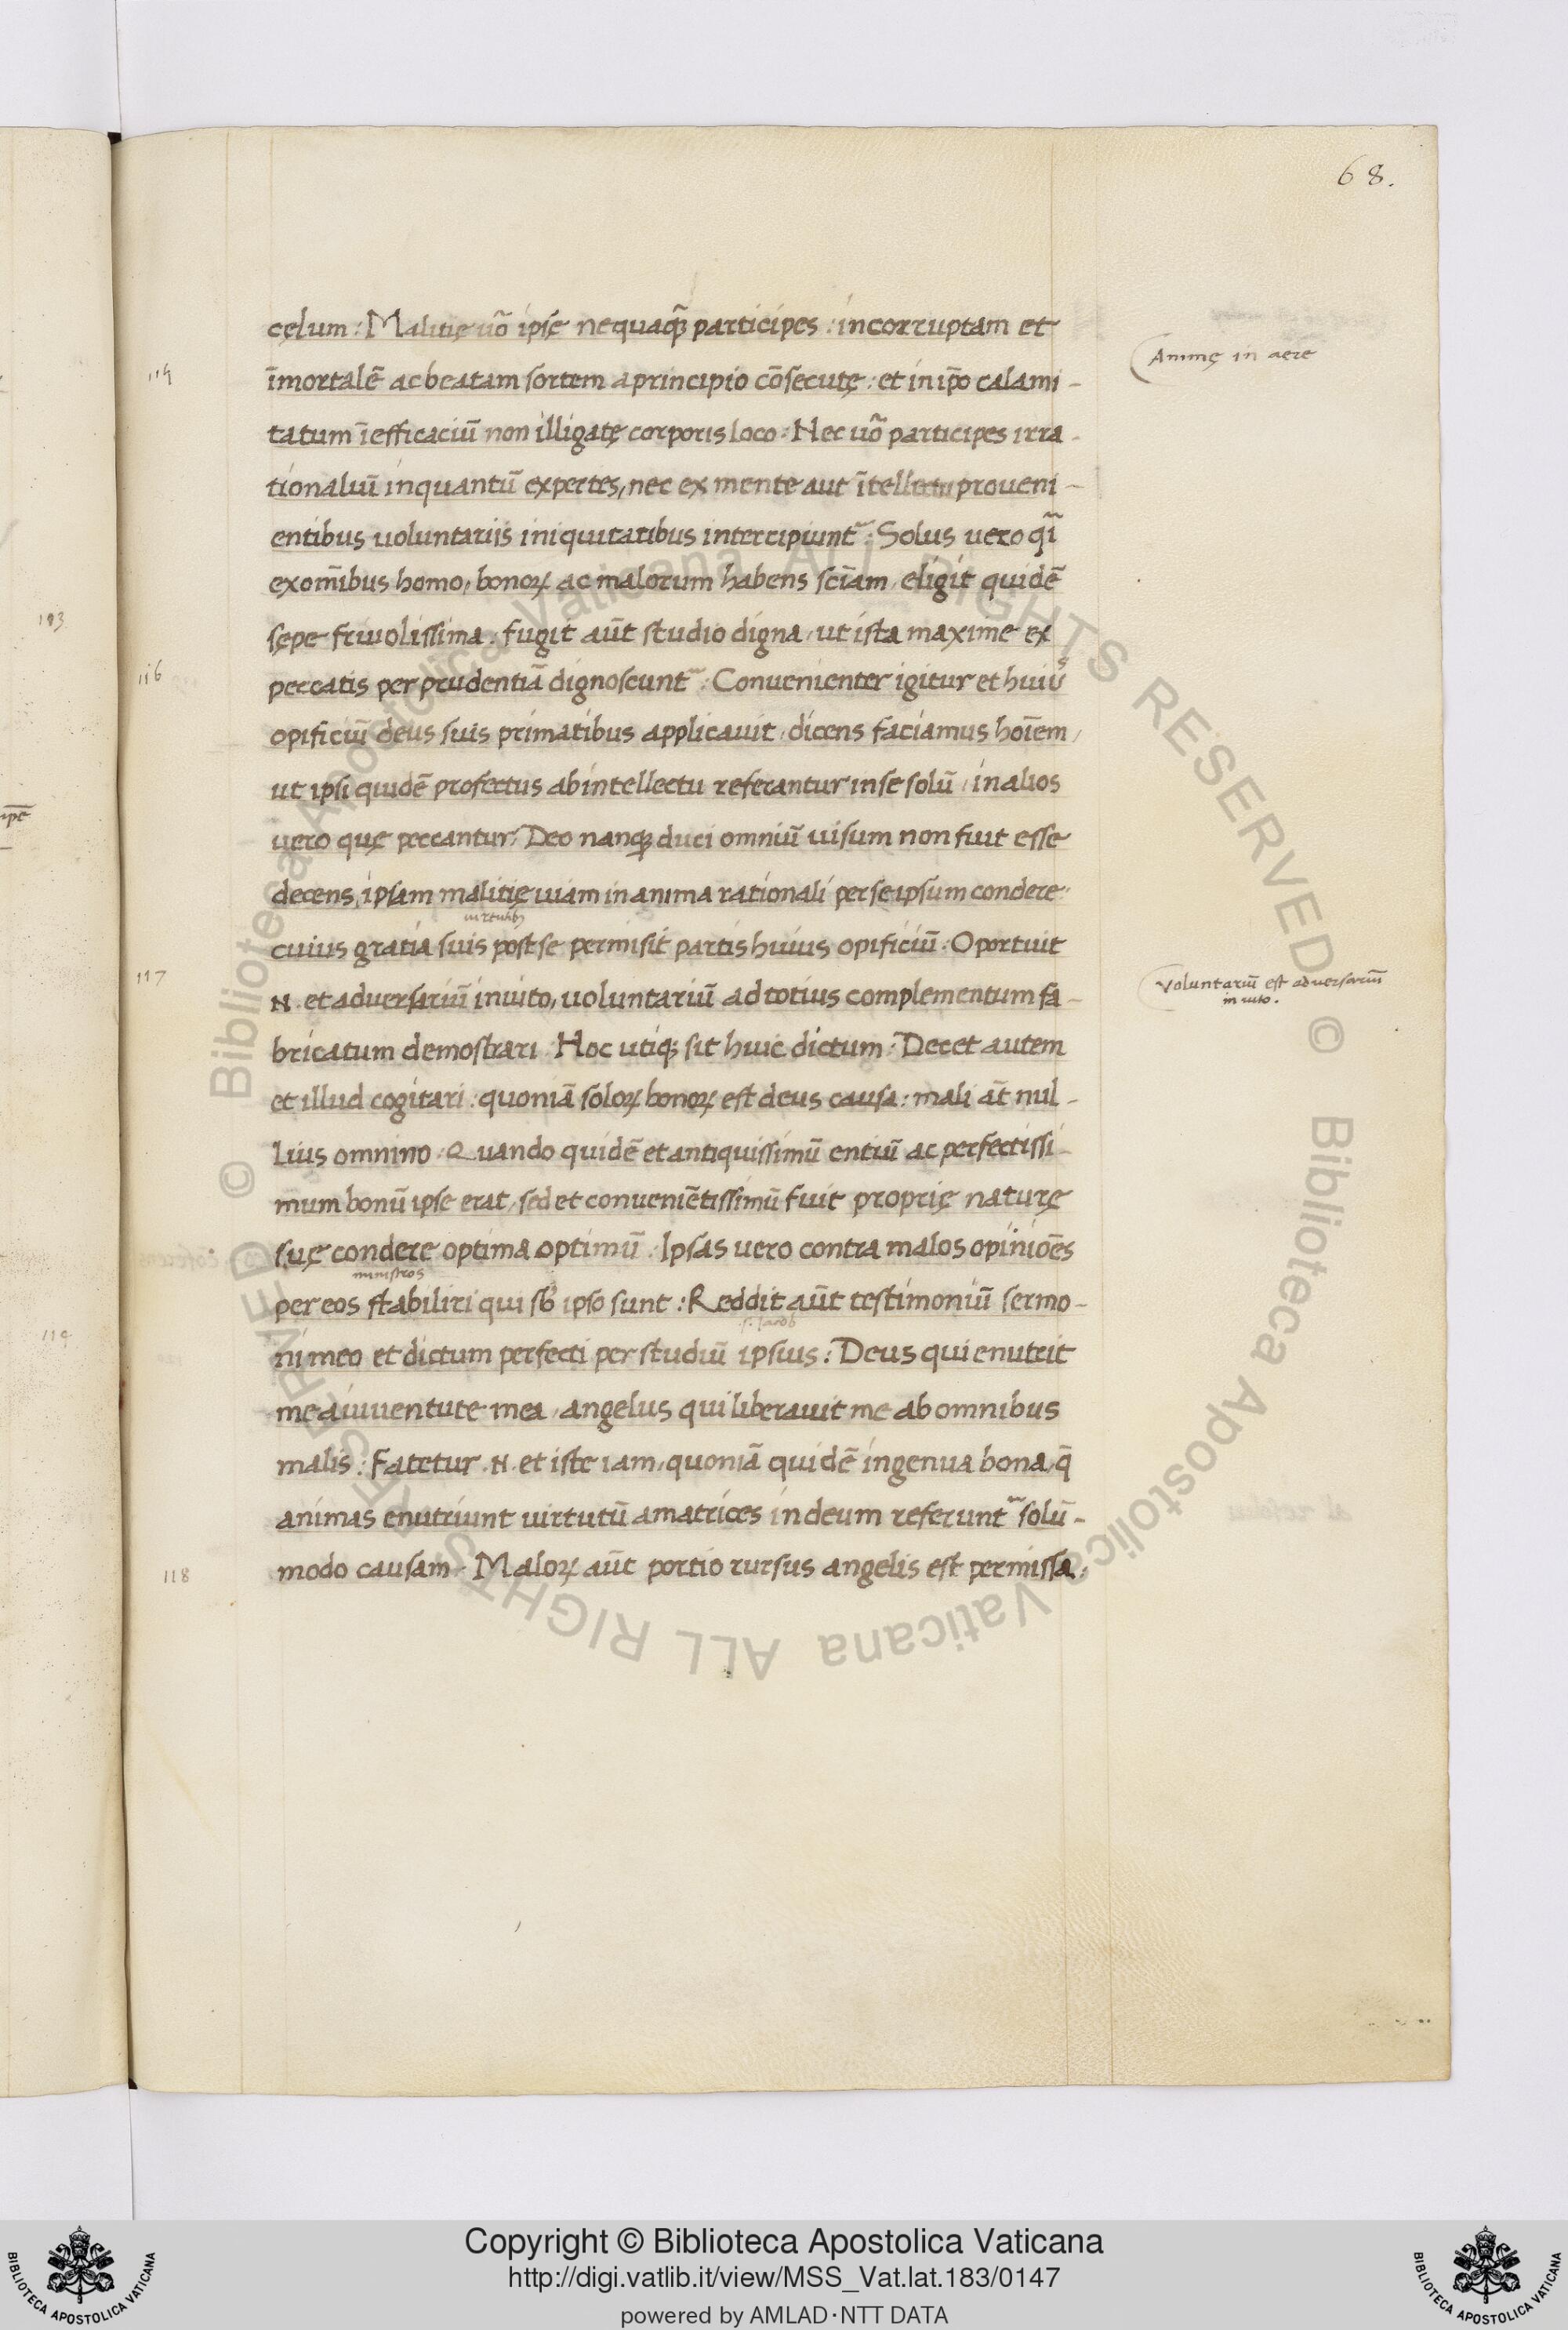 68.
cęlum : Malitię uõ ipsę nequaq̃ participes : incorruptam et
Animę in aere
119
ĩmortalẽ ac beatam sortem a principio cõsecutę : et in ip̃o calami-
tatum ĩefficaciũ non illigatę corporis loco : Nec uõ participes irra-
tionaliũ inquantũ expertes, nec ex mente aut ĩtellectu proueni-
entibus uoluntariis iniquitatibus intercipiunt̃ : Solus uero qĩ
ex om̃ibus homo, bonoꝝ ac malorum habens sciãm, eligit quidẽ
sępe friuolissima : fugit aũt studio digna, ut ista maxime ex
116
peccatis per prudentiã dignoscunt̃ : Conuenienter igitur et huius
opificiũ deus suis primatibus applicauit, dicens faciamus hoĩem,
ut ipsi quidẽ profectus ab intellectu referantur in se solũ, in alios
uero quę peccantur, Deo nanq; duci omniũ uisum non fuit esse
decens, ipsam malitię uiam in anima rationali per se ipsum condere
uirtutib;
cuius gratia suis post se permisit partis huius opificiũ : Oportuit
117
.N. et aduersariũ inuito, uoluntariũ ad totius complementum fa-
Voluntariũ est aduersariũ
inuito.
bricatum demostrari : Hoc utiq; sit huic dictum : Decet autem
et illud cogitari : quoniã soloꝝ bonoꝝ est deus causa : mali aũt nul-
lius omnino : Quando quidẽ et antiquissimũ entiũ ac perfectissi-
mum bonũ ipse erat, sed et conueniẽtissimũ fuit proprię naturę
suę condere optima optimũ : Ipsas uero contra malos opiniões
ministros
per eos stabiliri qui sb̃ ipso sunt : Reddit aũt testimoniũ sermo-
s. Iacob
ni meo et dictum perfecti per studiũ ipsius : Deus qui enutrit
me a iuuentute mea, angelus qui liberauit me ab omnibus
malis : Fatetur .N. et iste iam, quoniã quidẽ ingenua bona, q̃
animas enutriunt uirtutũ amatrices in deum referunt̃ solũ-
118
modo causam. Maloꝝ aũt portio rursus angelis est permissa,
193
114
ipẽ
© Biblioteca Apostolica Vaticana ALL RIGHTS RESERVED © Biblioteca Apostolica Vaticana ALL RIGHTS RESERVED
Copyright © Biblioteca Apostolica Vaticana
http://digi.vatlib.it/view/MSS_Vat.lat.183/0147
powered by AMLAD·NTT DATA
BIBLIOTECA APOSTOLICA VATICANA
BIBLIOTECA APOSTOLICA VATICANA